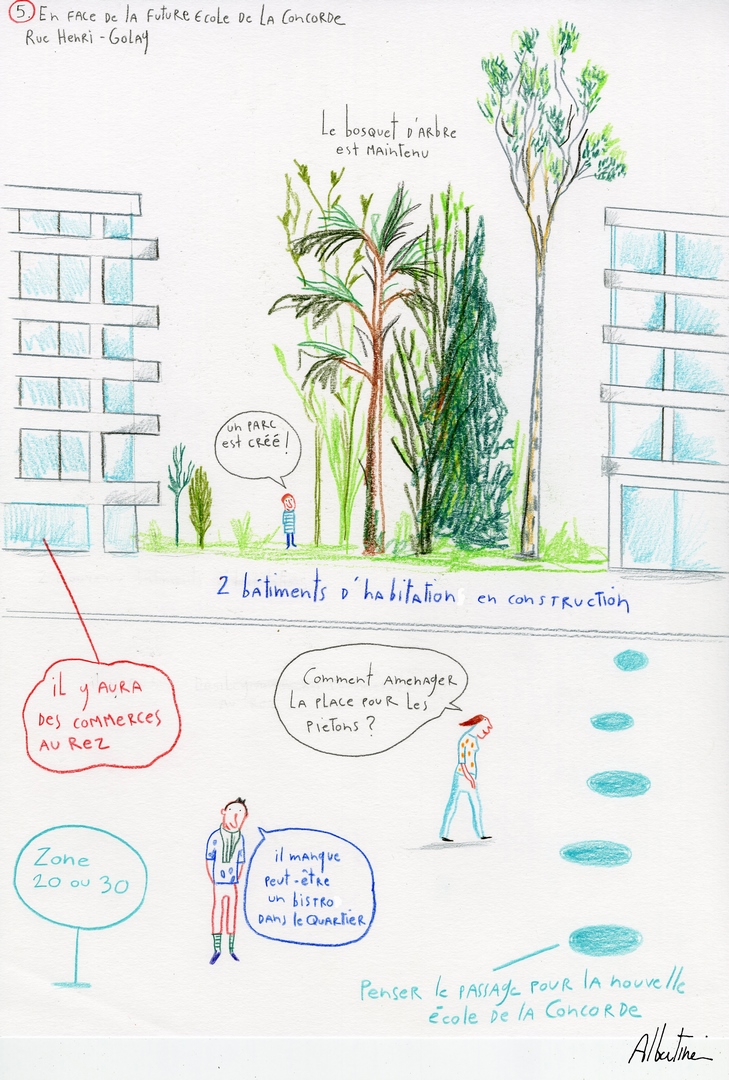 5. En face de la future école de la Concorde
Rue Henri-Golay
Le bosquet d'arbre
est maintenu
un parc
est créé !
2 bâtiments d'habitation en construction
il y aura
des commerces
au rez
Comment amenager
la place pour les
pietons ?
Zone
20 ou 30
il manque
peut-être
un bistro
dans le quartier
Penser le passage pour la nouvelle
école de la Concorde
Albertine